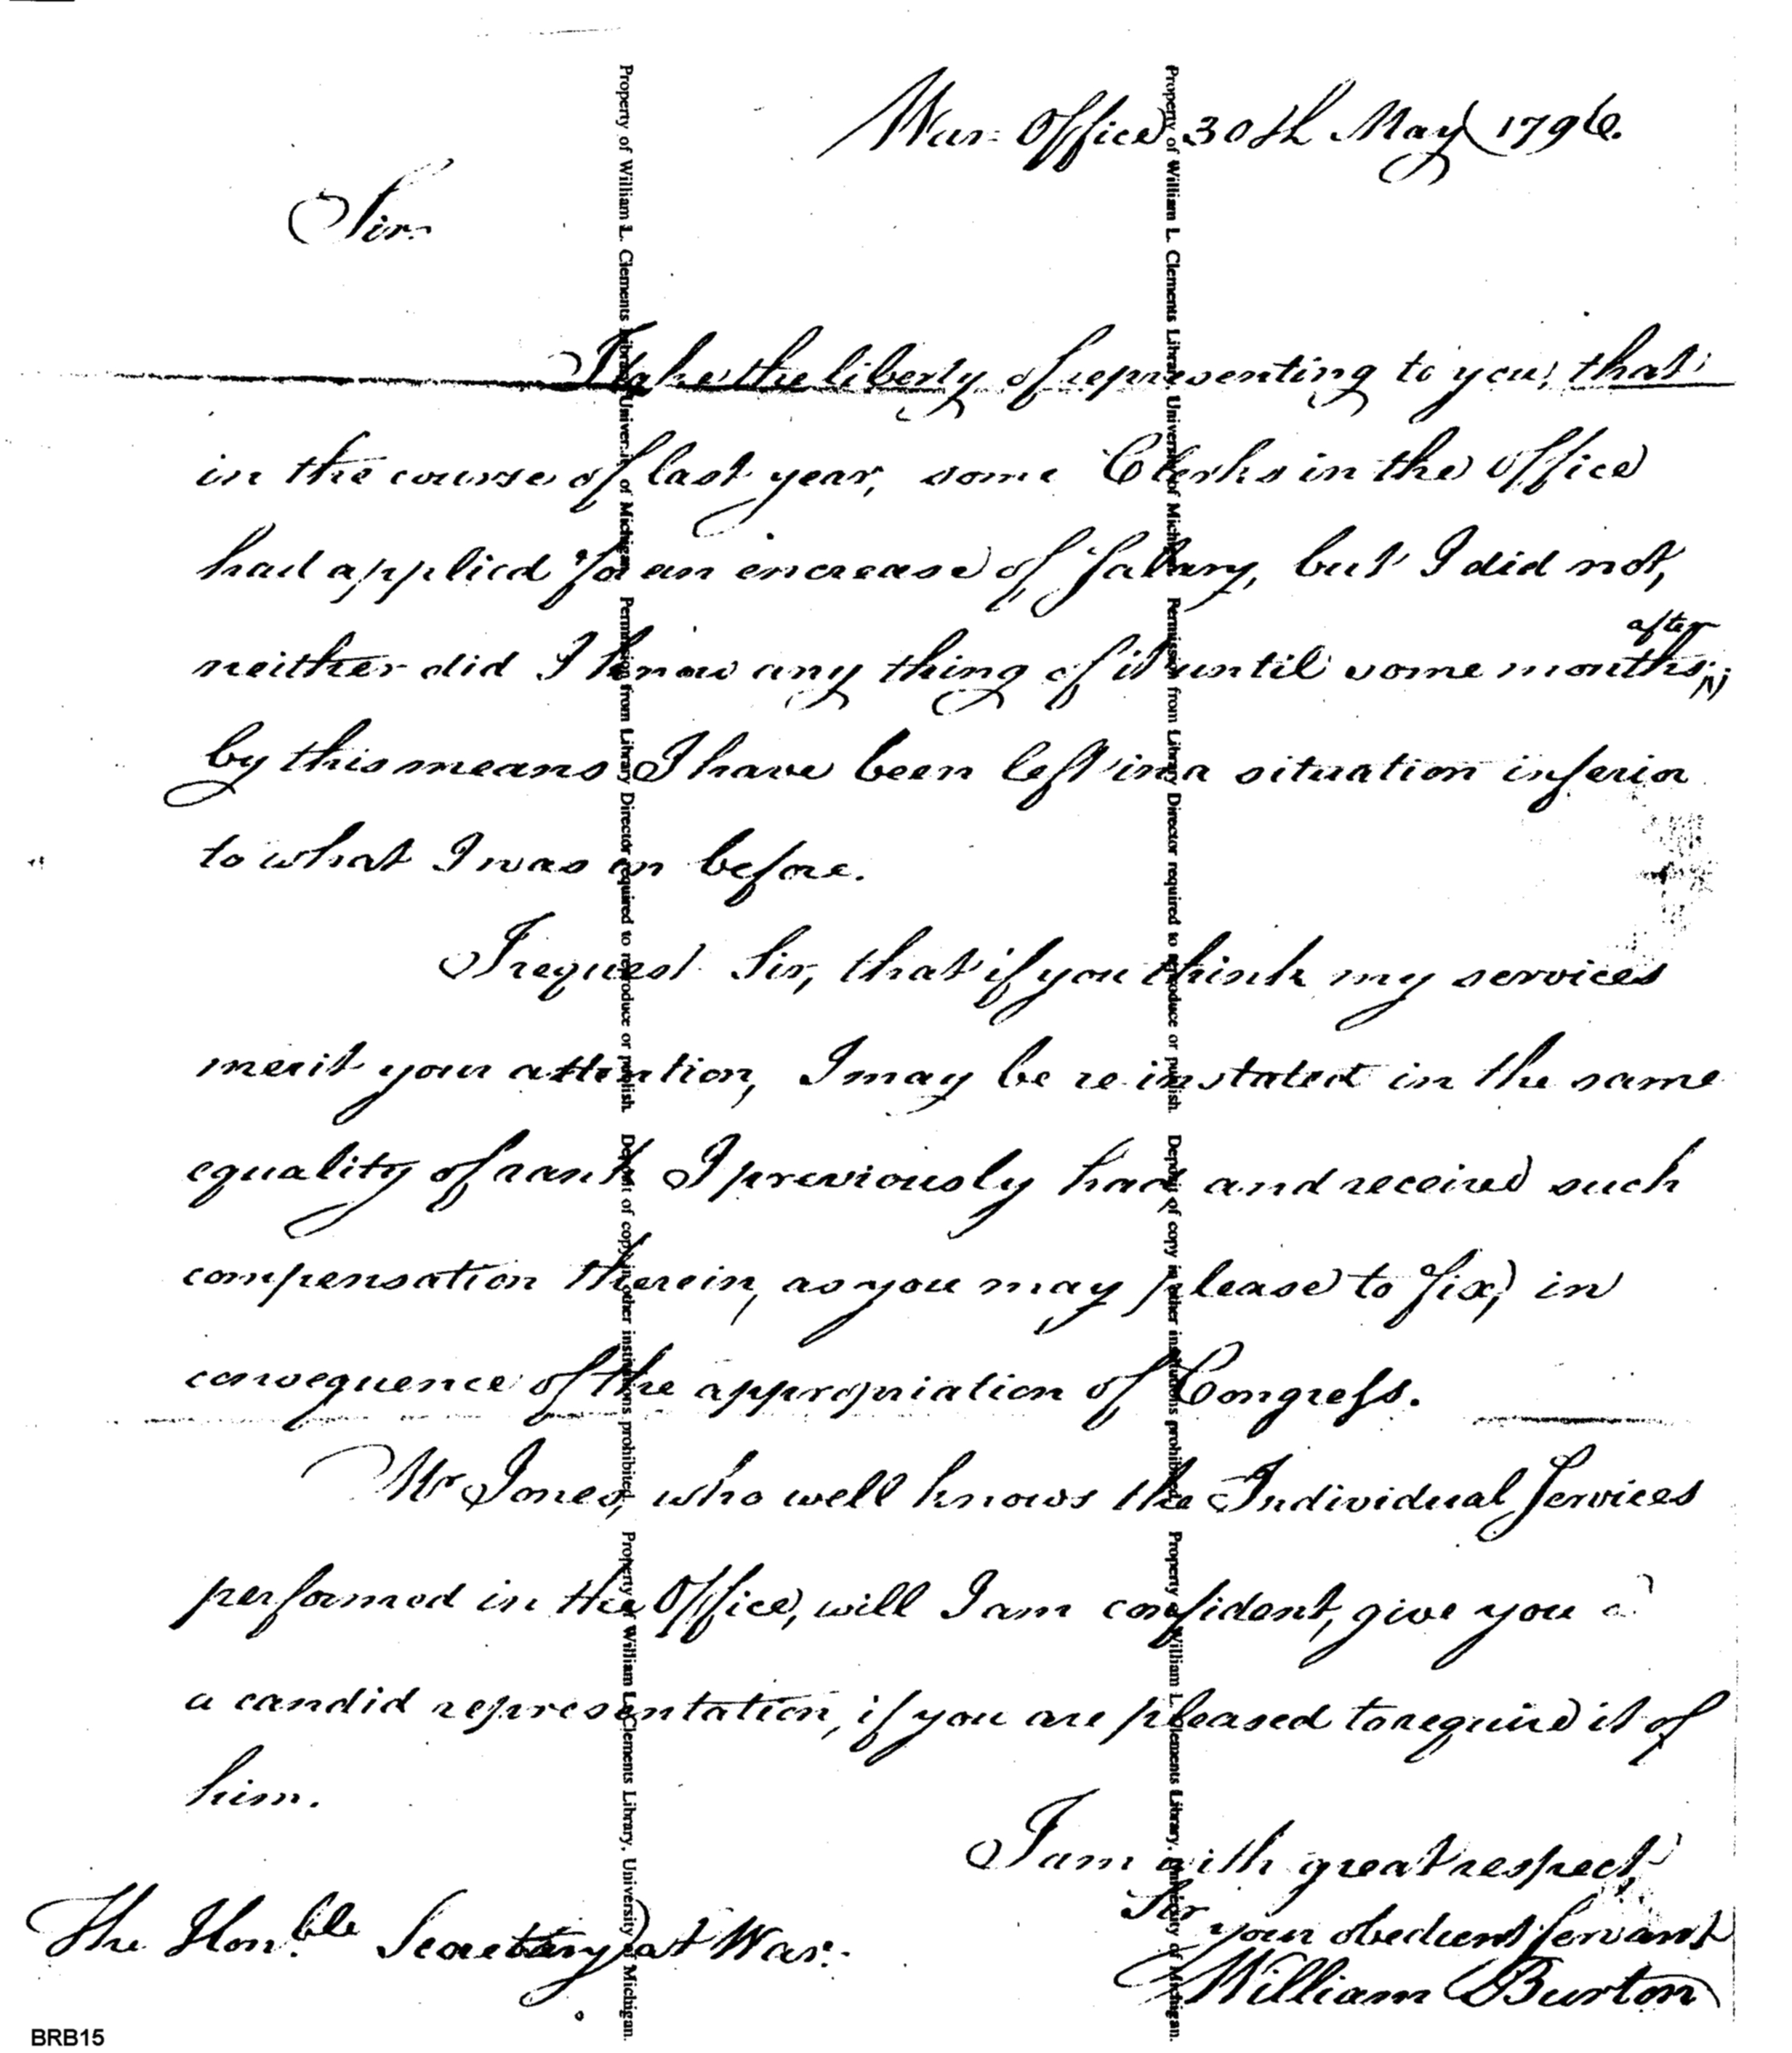 War Office 30th May 1796.
Sir
I take the liberty of representing to you, that
in the course of last year, some Clerks in the office
had applied for an encrease of Salary, but I did not,
after
neither did I know any thing of it until some months;
by this means I have been left in a situation inferior
to what I was in before.
I request Sir, that if you think my services
merit your attention, I may be re instated in the same
equality of rank I previously had and received such
compensation therein, as you may please to fix, in
consequence of the appropriation of Congress.
Mr Jones, who well knows the Individual Services
performed in the Office, will I am confident, give you a
a candid representation, if you are pleased to require it of
him.
I am with great respect,
Sir
your obedient servant
William Burton
The Honble Secretary at War.
BRB15
Property of William L. Clements Library, University of Michigan. Permission from Library Director required to reproduce or publish. Deposit of copy in other institutions prohibited.
Property of William L. Clements Library, University of Michigan.
Property of William L. Clements Library, University of Michigan. Permission from Library Director required to reproduce or publish. Deposit of copy in other institutions prohibited.
Property of William L. Clements Library, University of Michigan.